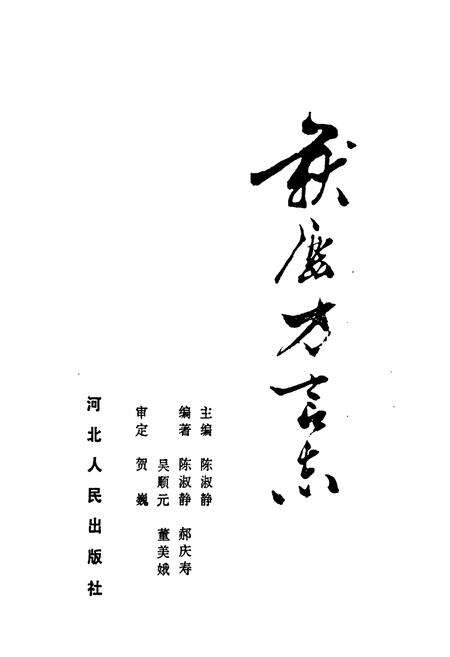 获鹿方言志
主编 陈淑静
编著 陈淑静 郝庆寿
吴顺元 董美娥
审定 贺巍
河北人民出版社